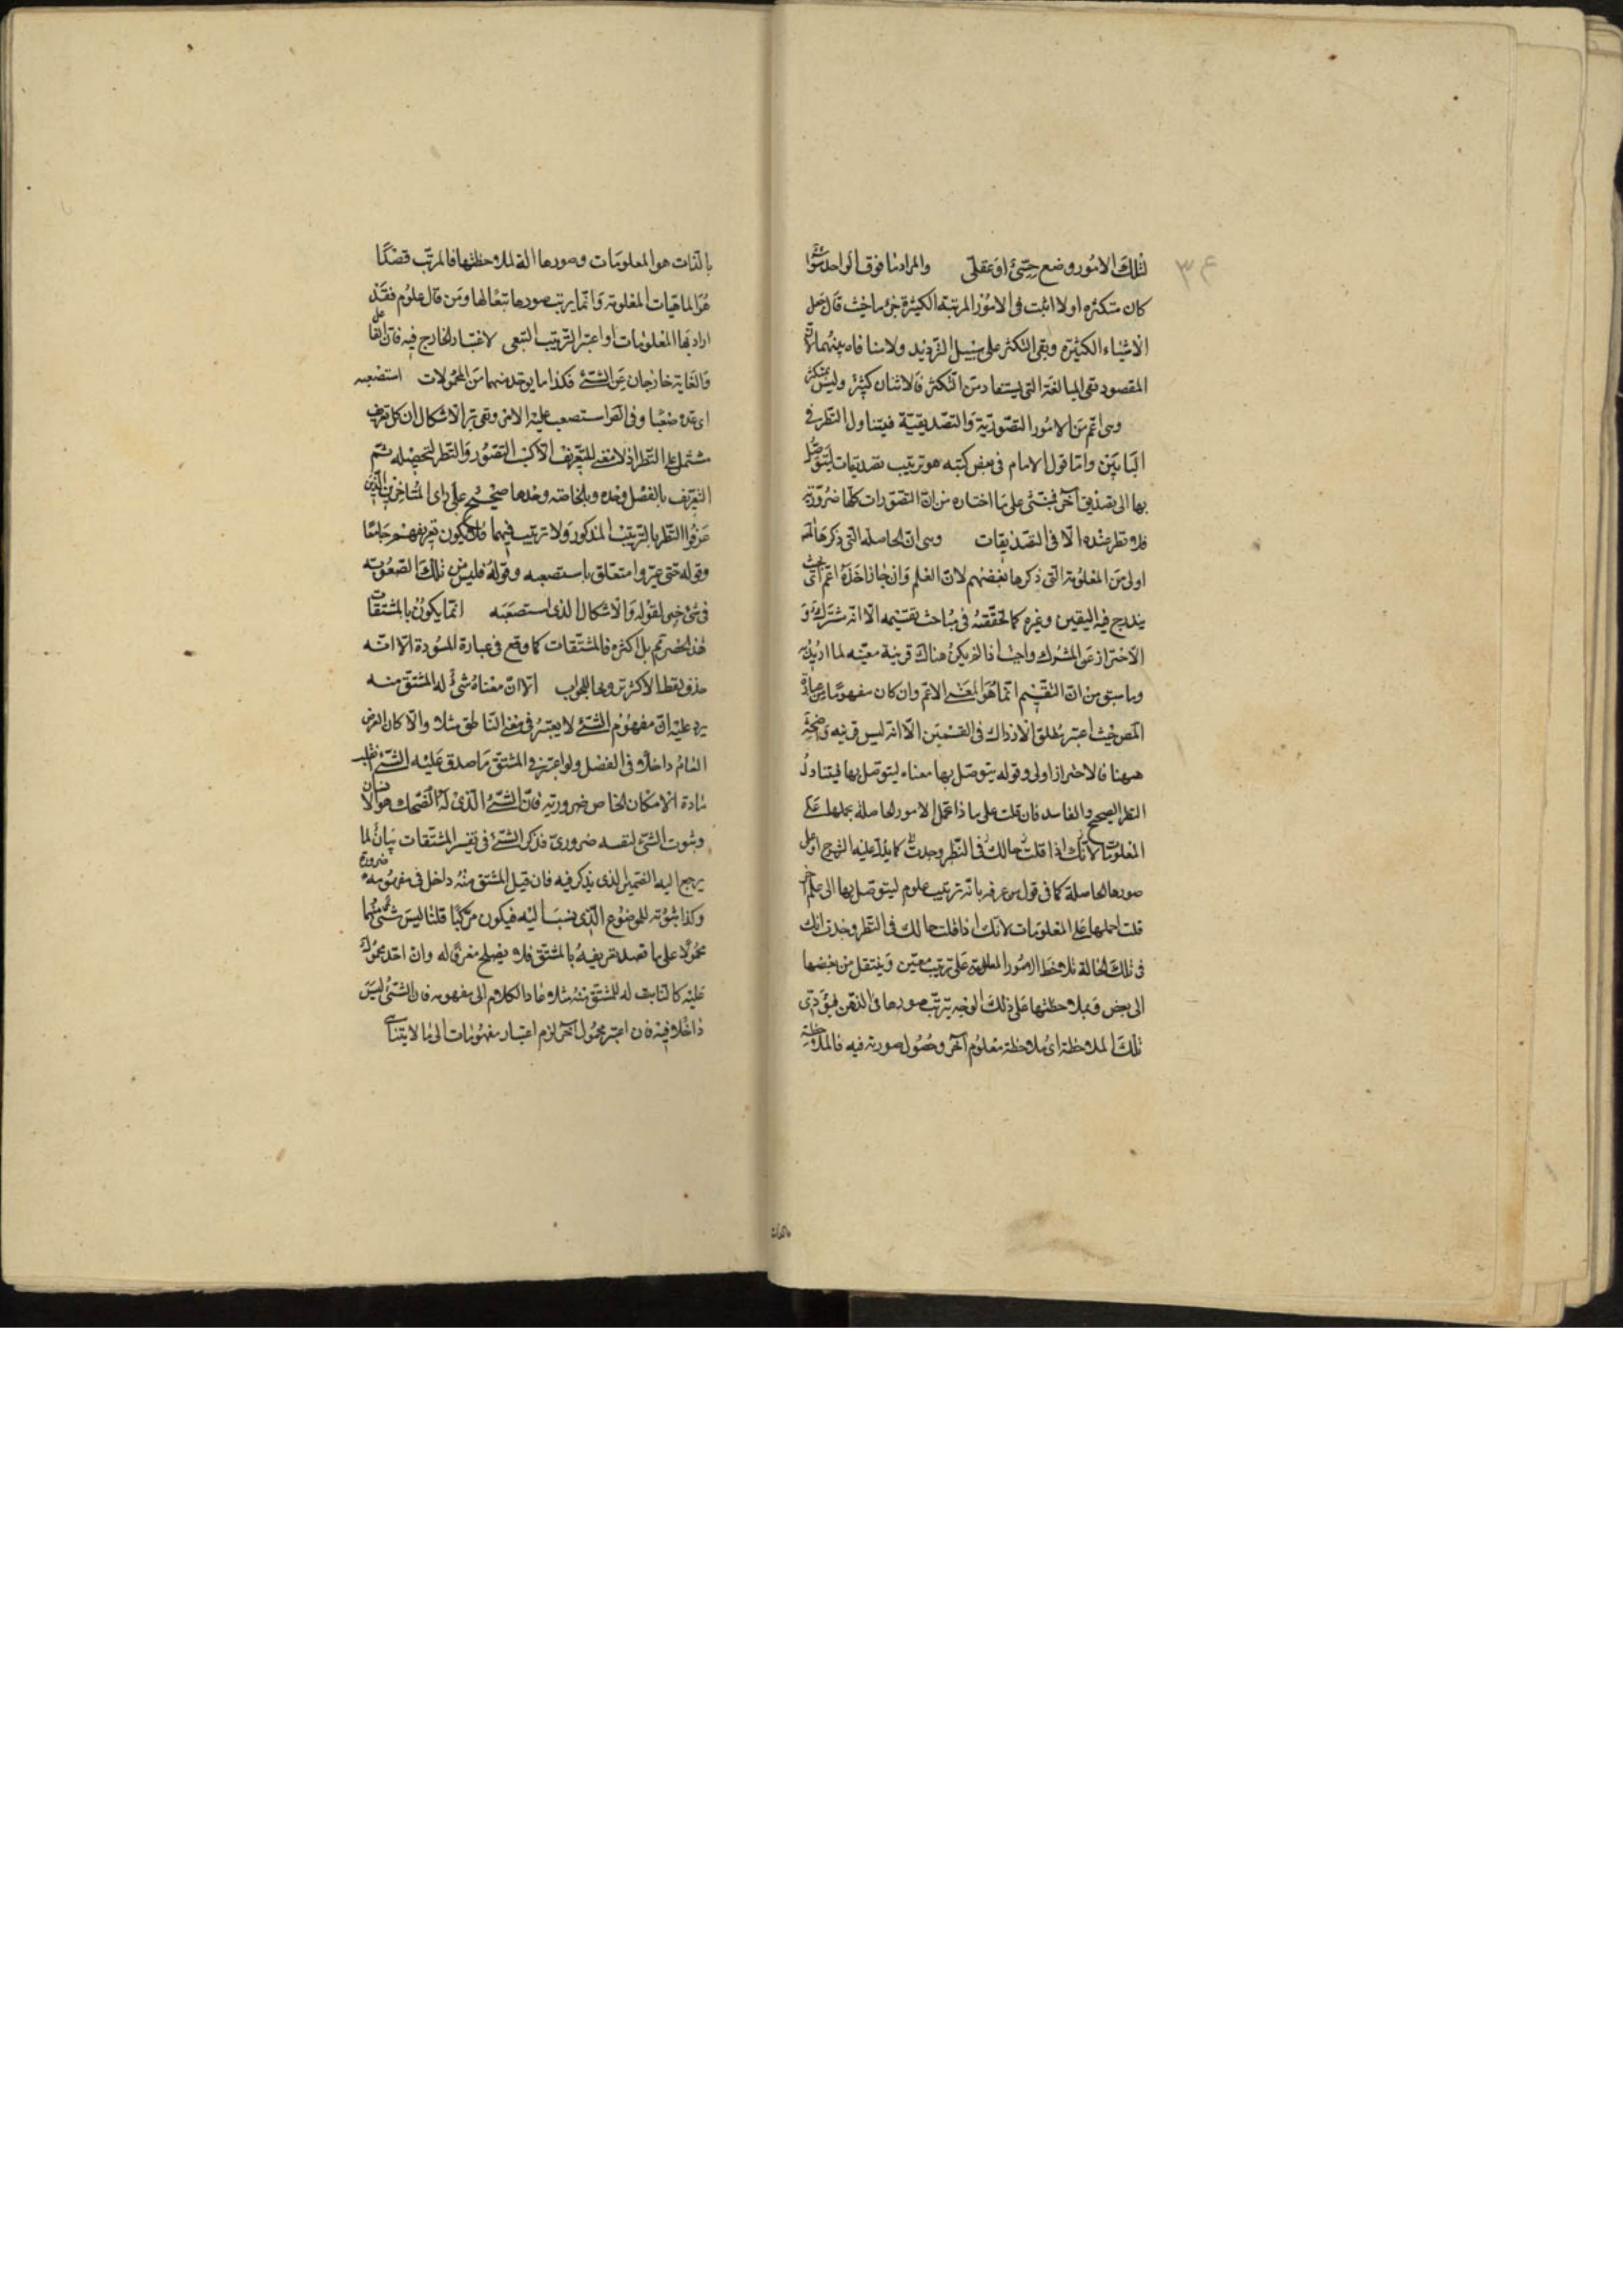 ٣٤
لتلك الامور وضع حسّىّ او عقلىّ والمراد بها فوق الواحد سواء
كان متكثره اولا اثبت فى الامور المرتبة الكثيرة جزما حيث قال على
الاشياء الكثيرة وبقى التكثر على سبيل الترديد ولا منافاة بينهما لان
المقصود نفى المبالغة التى يستفاد من التكثر فالاثنان كثير وليس بمتكثر
وهى اعم من الامور التصورية والتصديقية فيتناول النظر فى
البابين واما قول الامام فى بعض كتبه هو ترتيب تصديقات ليتوصل
بها الى تصديق آخر فمبنى على ما اختاره من ان التصورات كلها ضرورية
فلا نظر عنده الا فى التصديقات وهى ان الحاصلة التى ذكرها المص
اولى من المعلومة التى ذكرها بعضهم لان العلم وان جاز اخذه اعم اى بحيث
يندرج فيه اليقين وغيره كما تحققته فى مباحث تقسيمه الا انه مشترك و
الاحتراز عن المشترك واجب اذا لم يكن هناك قرينة معينه لما اريد به
وما سبق من ان التقسيم انما هو المعنى الاعم وان كان مفهوما من عبارة
المص حيث اعتبر مطلق الادراك فى القسمين الا انه ليس قرينه واضحة
ههنا فالاحتراز اولى وقوله يتوصل بها معناه ليتوصل بها فيتناول
النظر الصحيح والفاسد فان قلت على ماذا تحمل الامور الحاصله بحملها على
المعلومات لانك اذا قلت حالك فى النظر وجدت كما يدل عليه الشرح او على
صورها الحاصلة كما فى قول من عرفه بانه ترتيب علوم ليتوصل بها الى علم آخر
قلت احملها على المعلومات لانك اذا قلت حالك فى النظر وجدت انك
فى تلك الحالة تلاحظ الامور المعلومة على ترتيب معين وينتقل من بعضها
الى بعض وبملاحظتها على ذلك الوجه يترتب صورها فى الذهن فيؤدى
تلك الملاحظة اى ملاحظة معلوم آخر وحصول صورته فيه فالملاحظة
بالذات هو المعلومات وصورها الة لملاحظتها فالمرتب قصدًا
هو الماهيات المعلومة وانما يرتب صورها تبعا لها ومن قال علوم فقد
اراد بها المعلومات او اعتبر الترتيب التبعى لاعتبار الخارج فيه فان الفاعل
والغاية خارجان عن الشئ فكذا ما يوخذ منهما من المحمولات استصعبه
اى عده صعبا وفى استصعب عليه الامر وتقرير الاشكال ان كل تعريف
مشتمل على النظر اذ لا معنى للتعريف الا كسب التصور والنظر لتحصيله ثم
التعريف بالفصل وحده وبالخاصه وحدها صحيح على راى المتاخرين الذين
عرفوا النظر بالترتيب المذكور ولا ترتيب فيهما فلا يكون تعريفهم جامعا
وقوله حتى غيروا متعلق باستصعبه وقوله فليس من تلك الصعوبة
فى شئ خبر لقوله والاشكال الذى استصعبه انما يكون بالمشتقات
هذا الحصر تم بل اكثره فالمشتقات كما وقع فى عبارة المسودة الا انه
حذف لفظ الاكثر ترويجا للجواب الا ان معناه شئ له المشتق منه
يرد عليه ان مفهوم الشئ لا يعتبر فى معنى الناطق مثلا والا كان العرض
العام داخلا فى الفصل ولو اعتبر فى المشتق ما صدق عليه الشئ انقلب
مادة الامكان الخاص ضرورية فان الشئ الذى له الضحك هو الانسان
وثبوت الشئ لنفسه ضرورى فذكر الشئ فى تفسير المشتقات بيان لما
يرجع اليه الضمير الذى يذكر فيه فان قيل المشتق منه داخل فى مفهومه ضرورة
وكذا ثبوته للموضوع الذى نسب اليه فيكون مركبا قلنا ليس شئ منهما
محمولا على ما قصد تعريفه بالمشتق فلا يصلح معرفا له وان اخذ محمول
عليه كالثابت له للمشتق منه مثلا عاد الكلام الى مفهومه فان الشئ ليس
داخلا فيه فان اعتبر محمول آخر لزم اعتبار مفهومات الى ما لا يتناهى